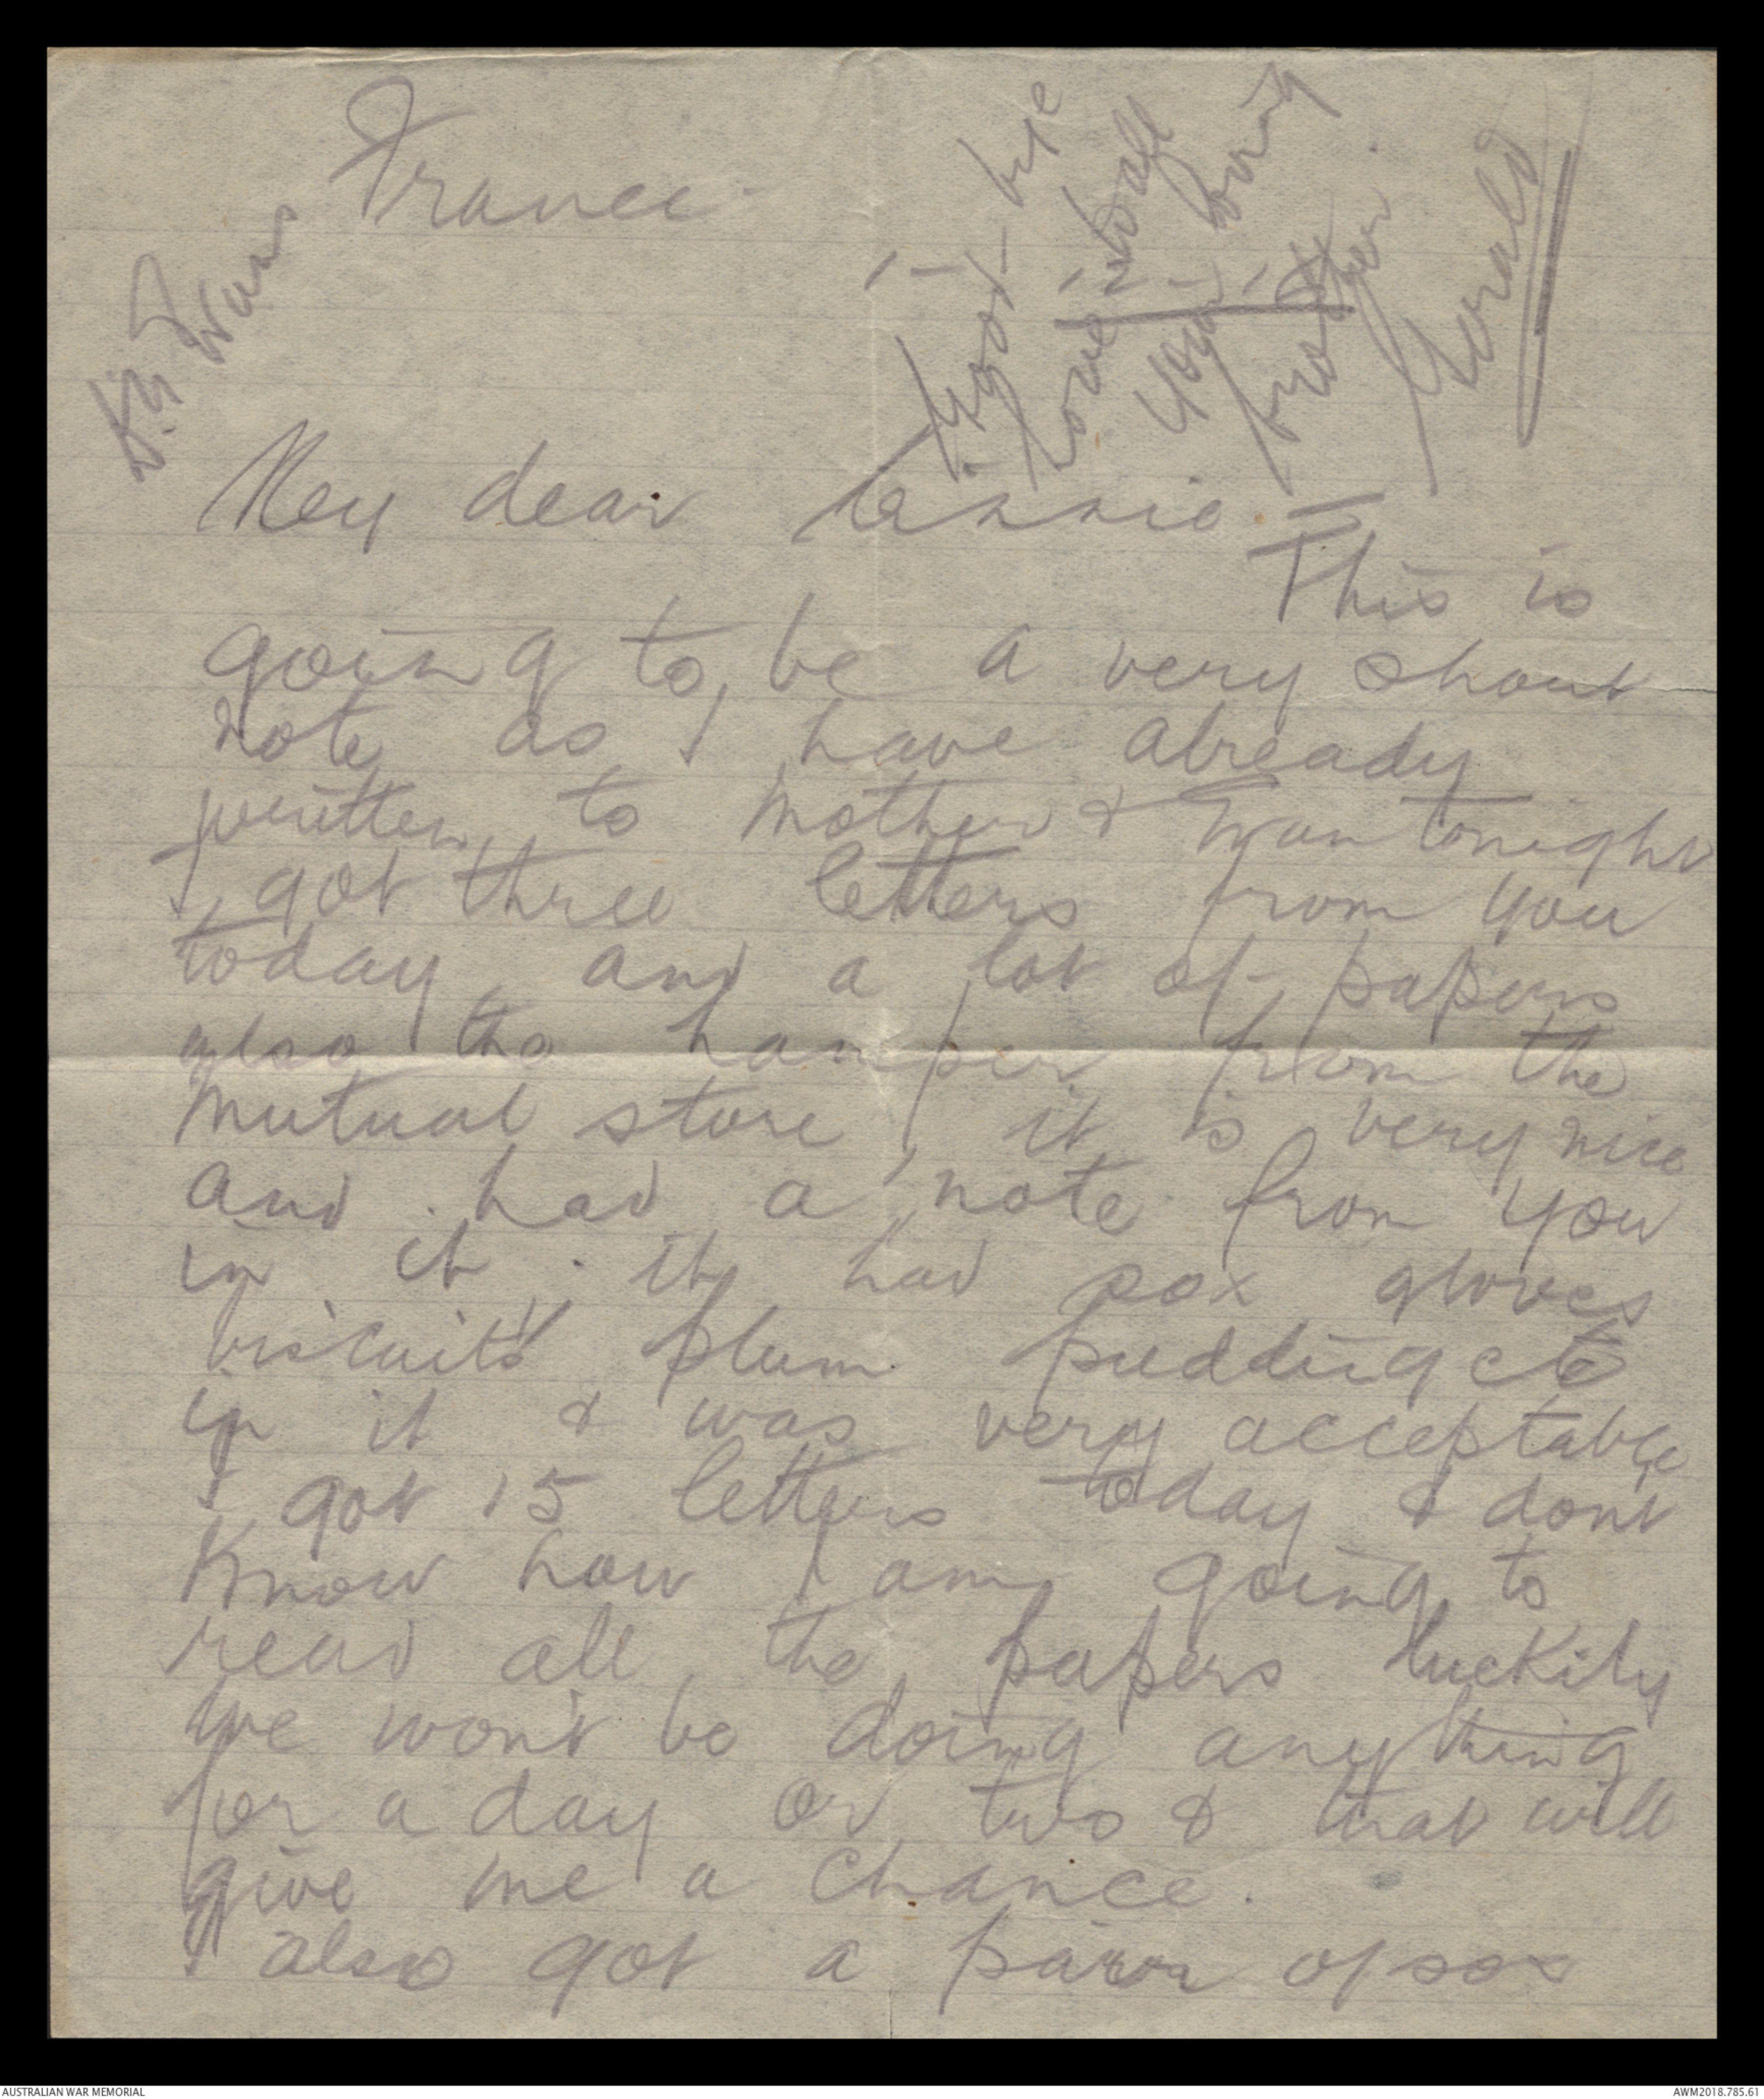 France
1-12-18
Good-bye
Love to all
Your loving
brother.
Gerald
My dear Cissie. This is
going to be a very short
note as I have already
written to Mother & Fran tonight
I got three letters from you
today and a lot of papers
also the hamper from the
Mutual store, it is very nice
and had a note from you
in it. It had sox gloves
biscuits plum pudding etc
in it & was very acceptable
I got 15 letters today & dont
know how I am going to
read all the papers luckily
we won't be doing anything
for a day or two & that will
give me a chance.
I also got a pair of sox
AUSTRALIAN WAR MEMORIAL
AWM2018.785.61